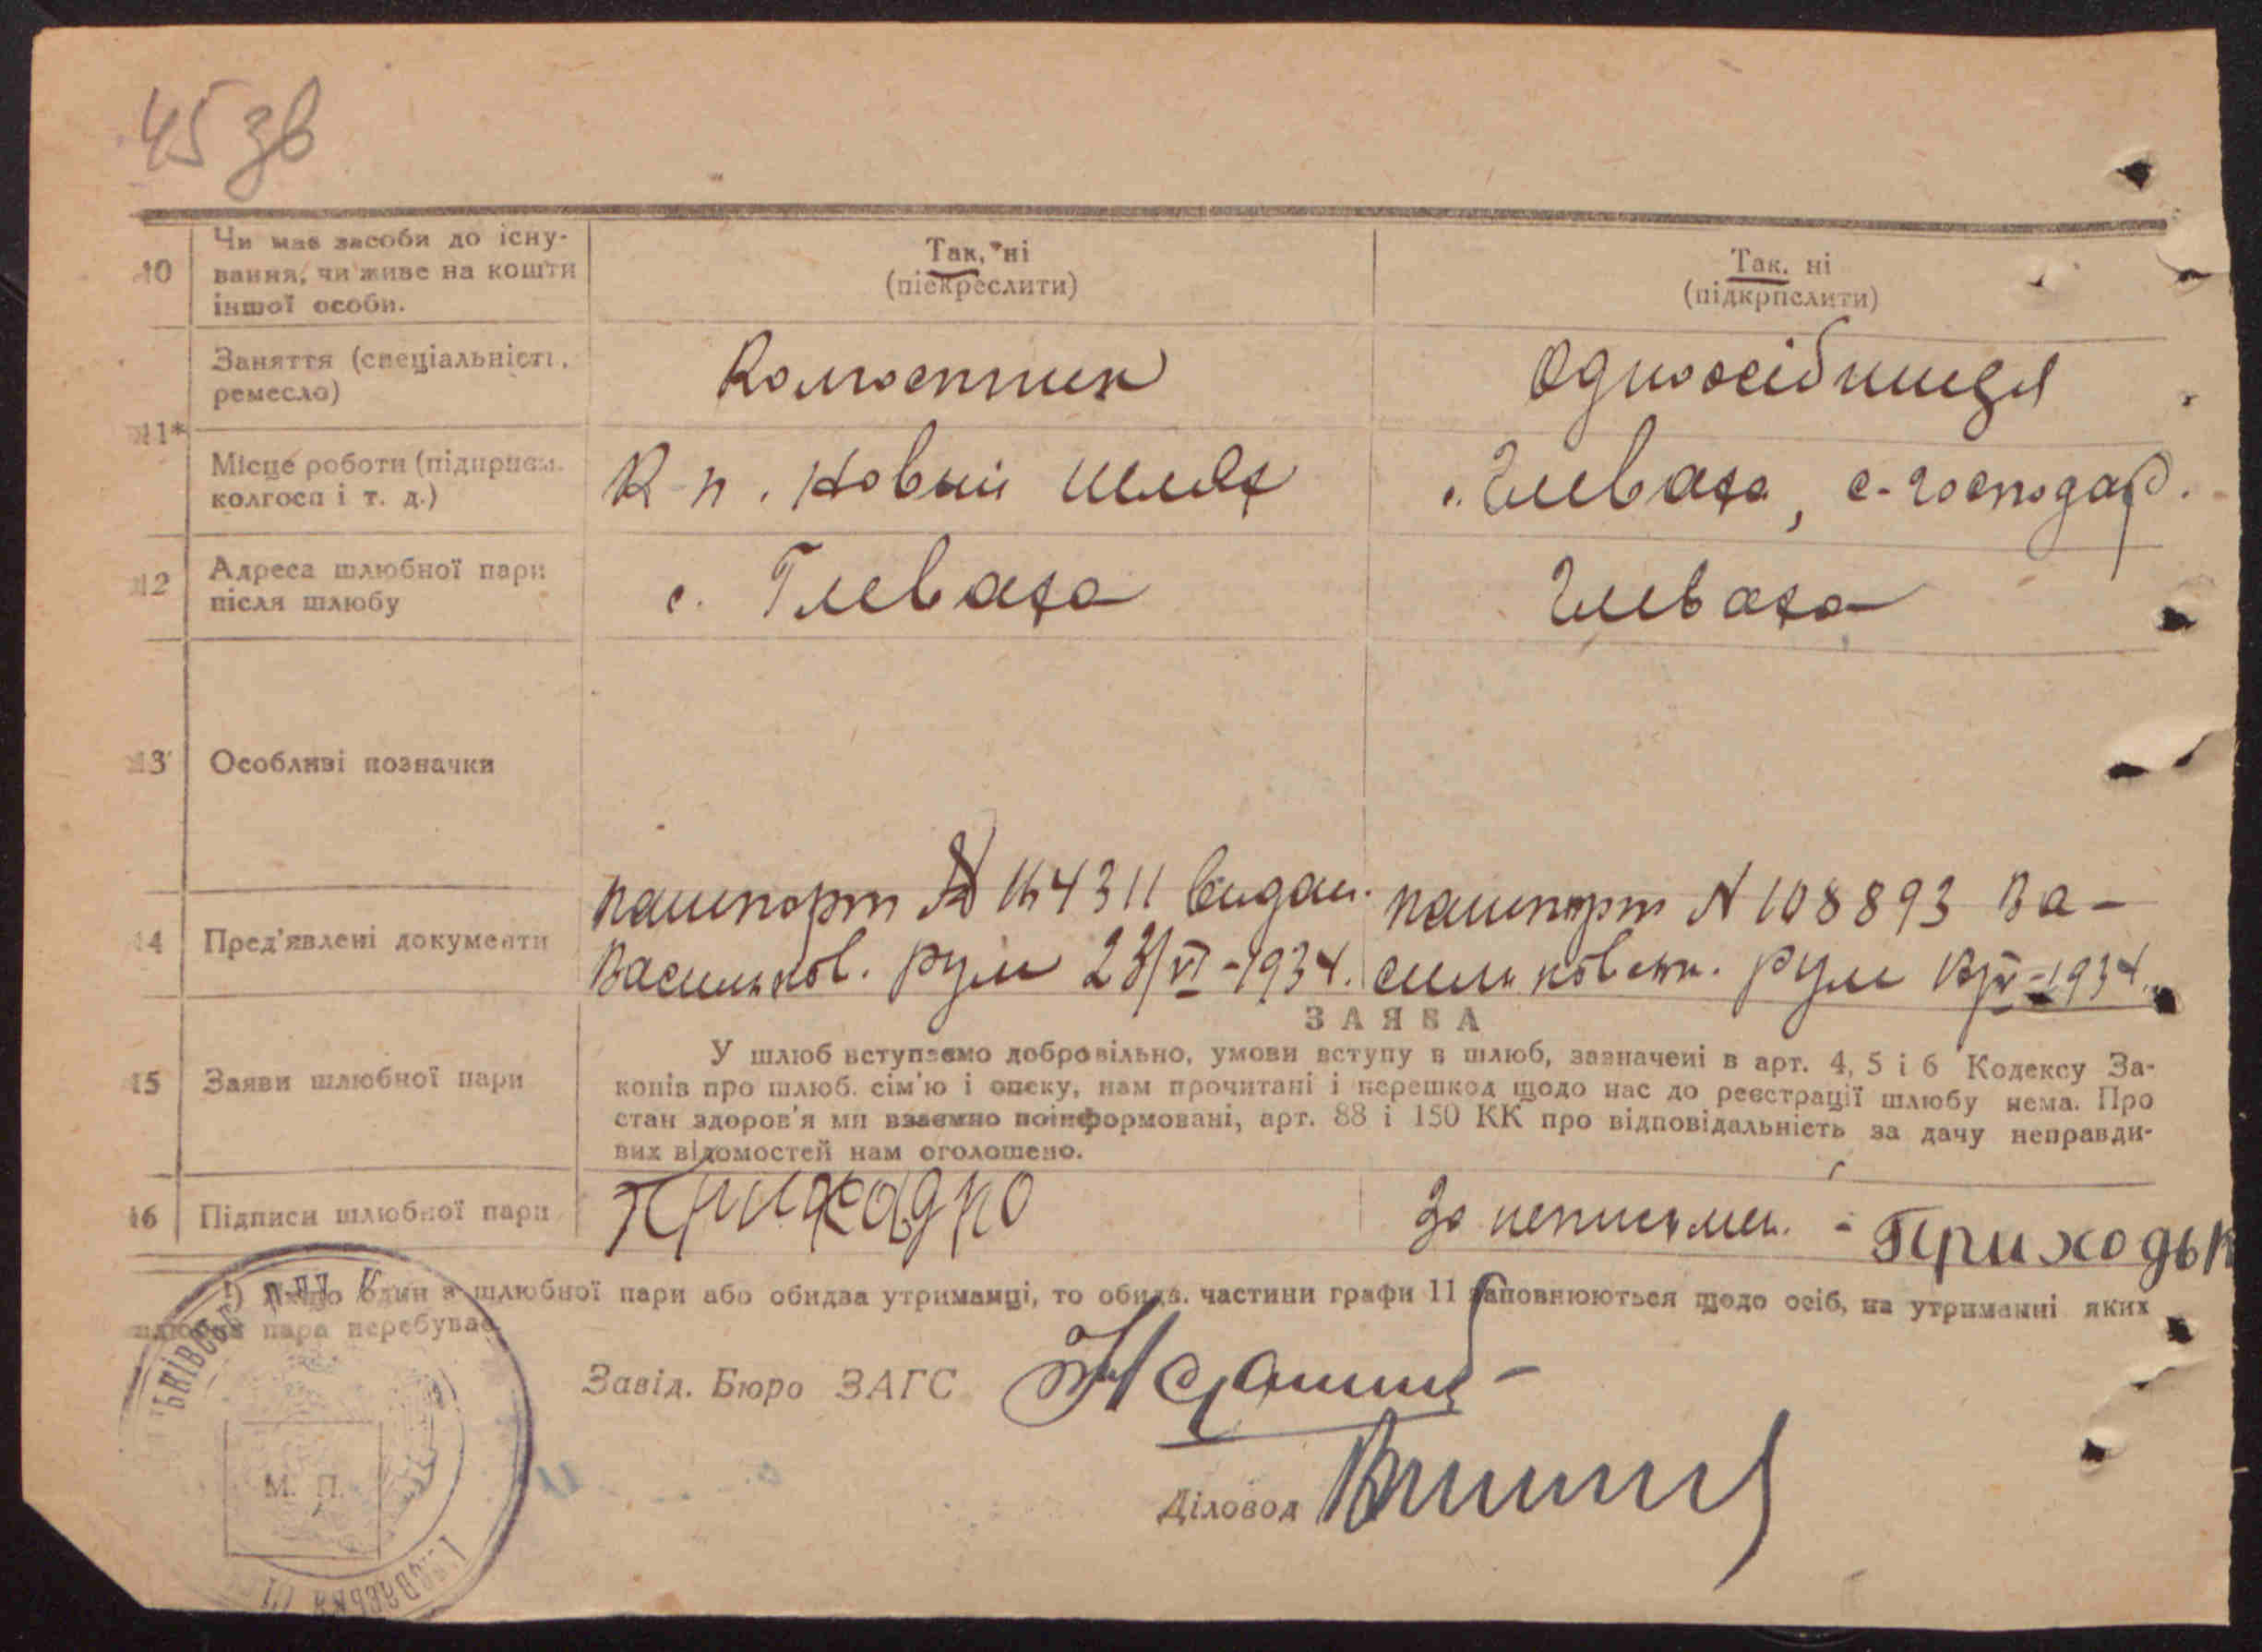 45 зв
10 Чи має засоби до існу-
вання, чи живе на кошти
іншої особи.
Так, ні
(підкреслити)
Так. ні
(підкрпслити)
11*
Заняття (спеціальність,
ремесло)
Колгоспник
Одноосібниця
Місце роботи (підприєм.
колгосп і т. д.)
К-п. Новый шлях
с. Глеваха, с-господар.
12 Адреса шлюбної пари
після шлюбу
с. Глеваха
Глеваха
13 Особливі позначки
14 Пред'явлені документи
пашпорт № 164311 видан.
Васильков. рум 23/VI-1934.
пашпорт N 108893 Ва-
сильковськ. рум 1934
15 Заяви шлюбної пари
ЗАЯВА
У шлюб вступаємо добровільно, умови вступу в шлюб, зазначені в арт. 4, 5 і 6 Кодексу За-
конів про шлюб. сім'ю і опеку, нам прочитані і перешкод щодо нас до реєстрації шлюбу нема. Про
стан здоров'я ми взаємно поінформовані, арт. 88 і 150 КК про відповідальність за дачу неправди-
вих відомостей нам оголошено.
16 Підписи шлюбної пари
Приходко
За неписьмен. - Приходьк
*) Якщо один з шлюбної пари або обидва утриманці, то обидв. частини графи 11 заповнюються щодо осіб, на утриманні яких
шлюбна пара перебуває.
Завід. Бюро ЗАГС
М. П.
Діловод